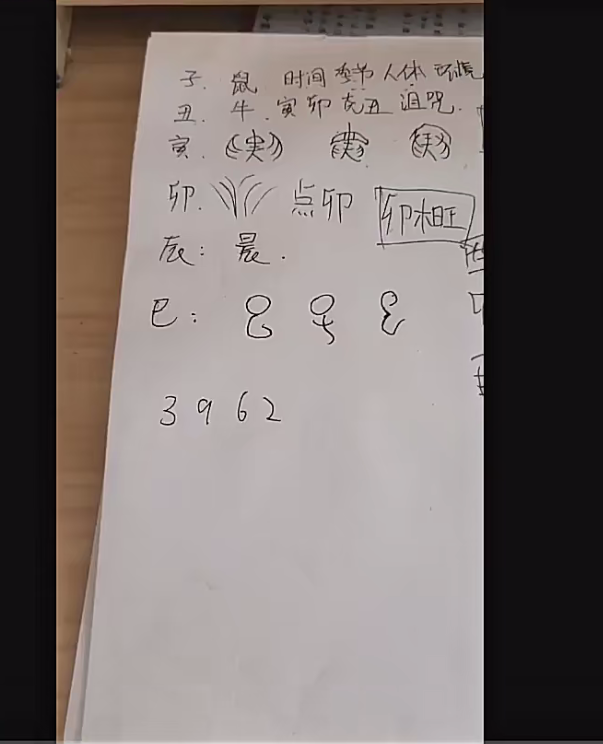 子. 鼠 时间 季节 人体 环境
丑. 牛. 寅卯 虎丑 诅咒.
寅.
卯. 点卯 卯木旺
辰: 晨.
巳:
3962